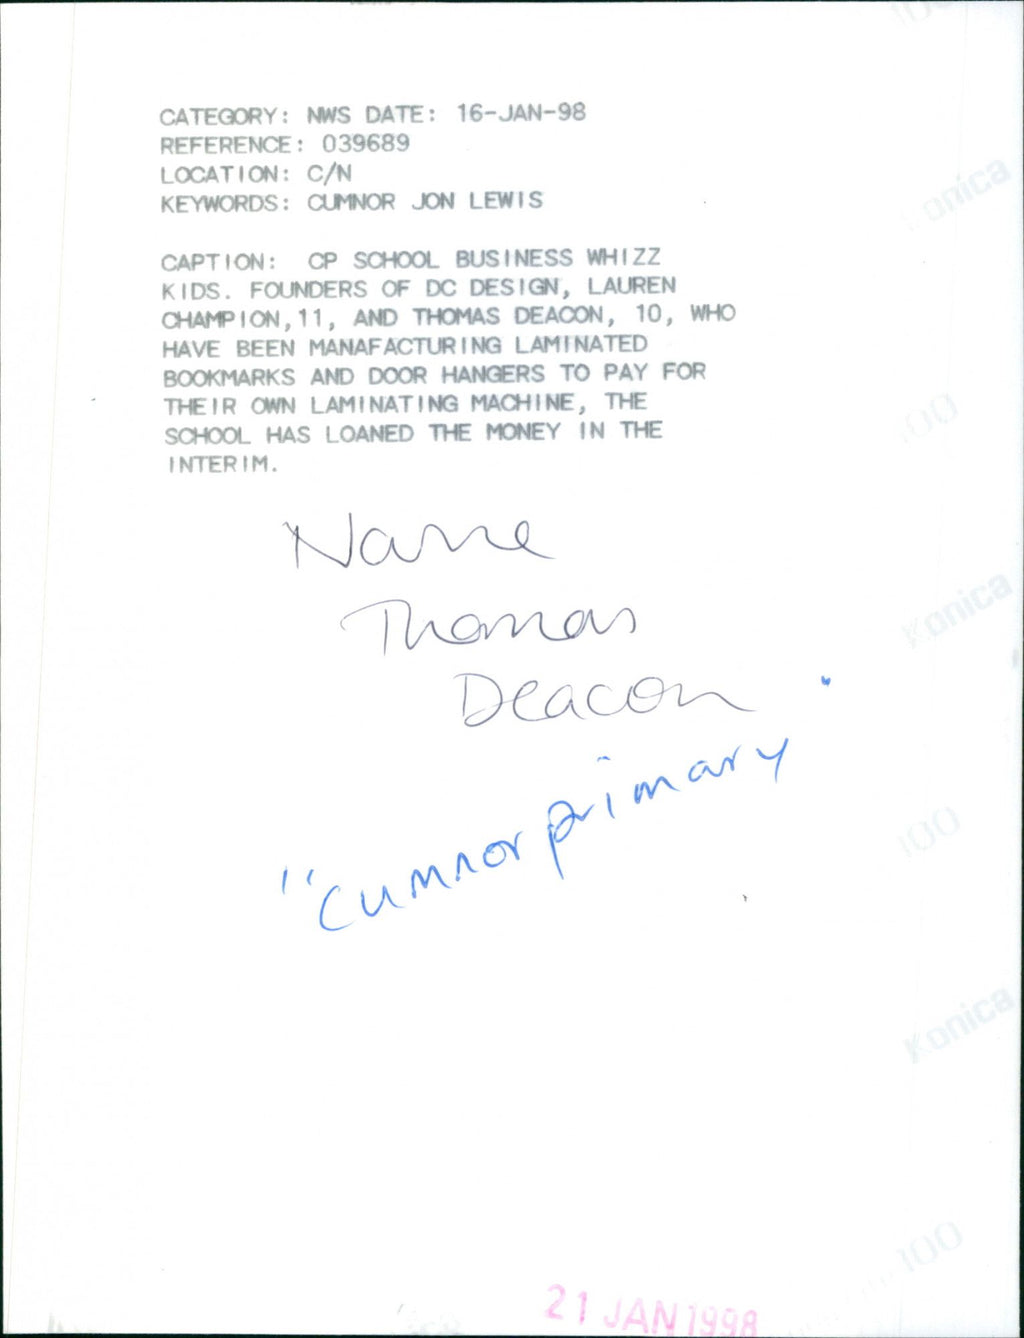 CATEGORY: NWS DATE: 16-JAN-98
REFERENCE: 039689
LOCATION: C/N
KEYWORDS: CUMNOR JON LEWIS
CAPTION: CP SCHOOL BUSINESS WHIZZ
KIDS. FOUNDERS OF DC DESIGN, LAUREN
CHAMPION,11, AND THOMAS DEACON, 10, WHO
HAVE BEEN MANAFACTURING LAMINATED
BOOKMARKS AND DOOR HANGERS TO PAY FOR
THEIR OWN LAMINATING MACHINE, THE
SCHOOL HAS LOANED THE MONEY IN THE
INTERIM.
Name
Thomas
Deacon
"Cumnor primary
21 JAN 1998
100
Konica
100
Konica
100
Konica
100